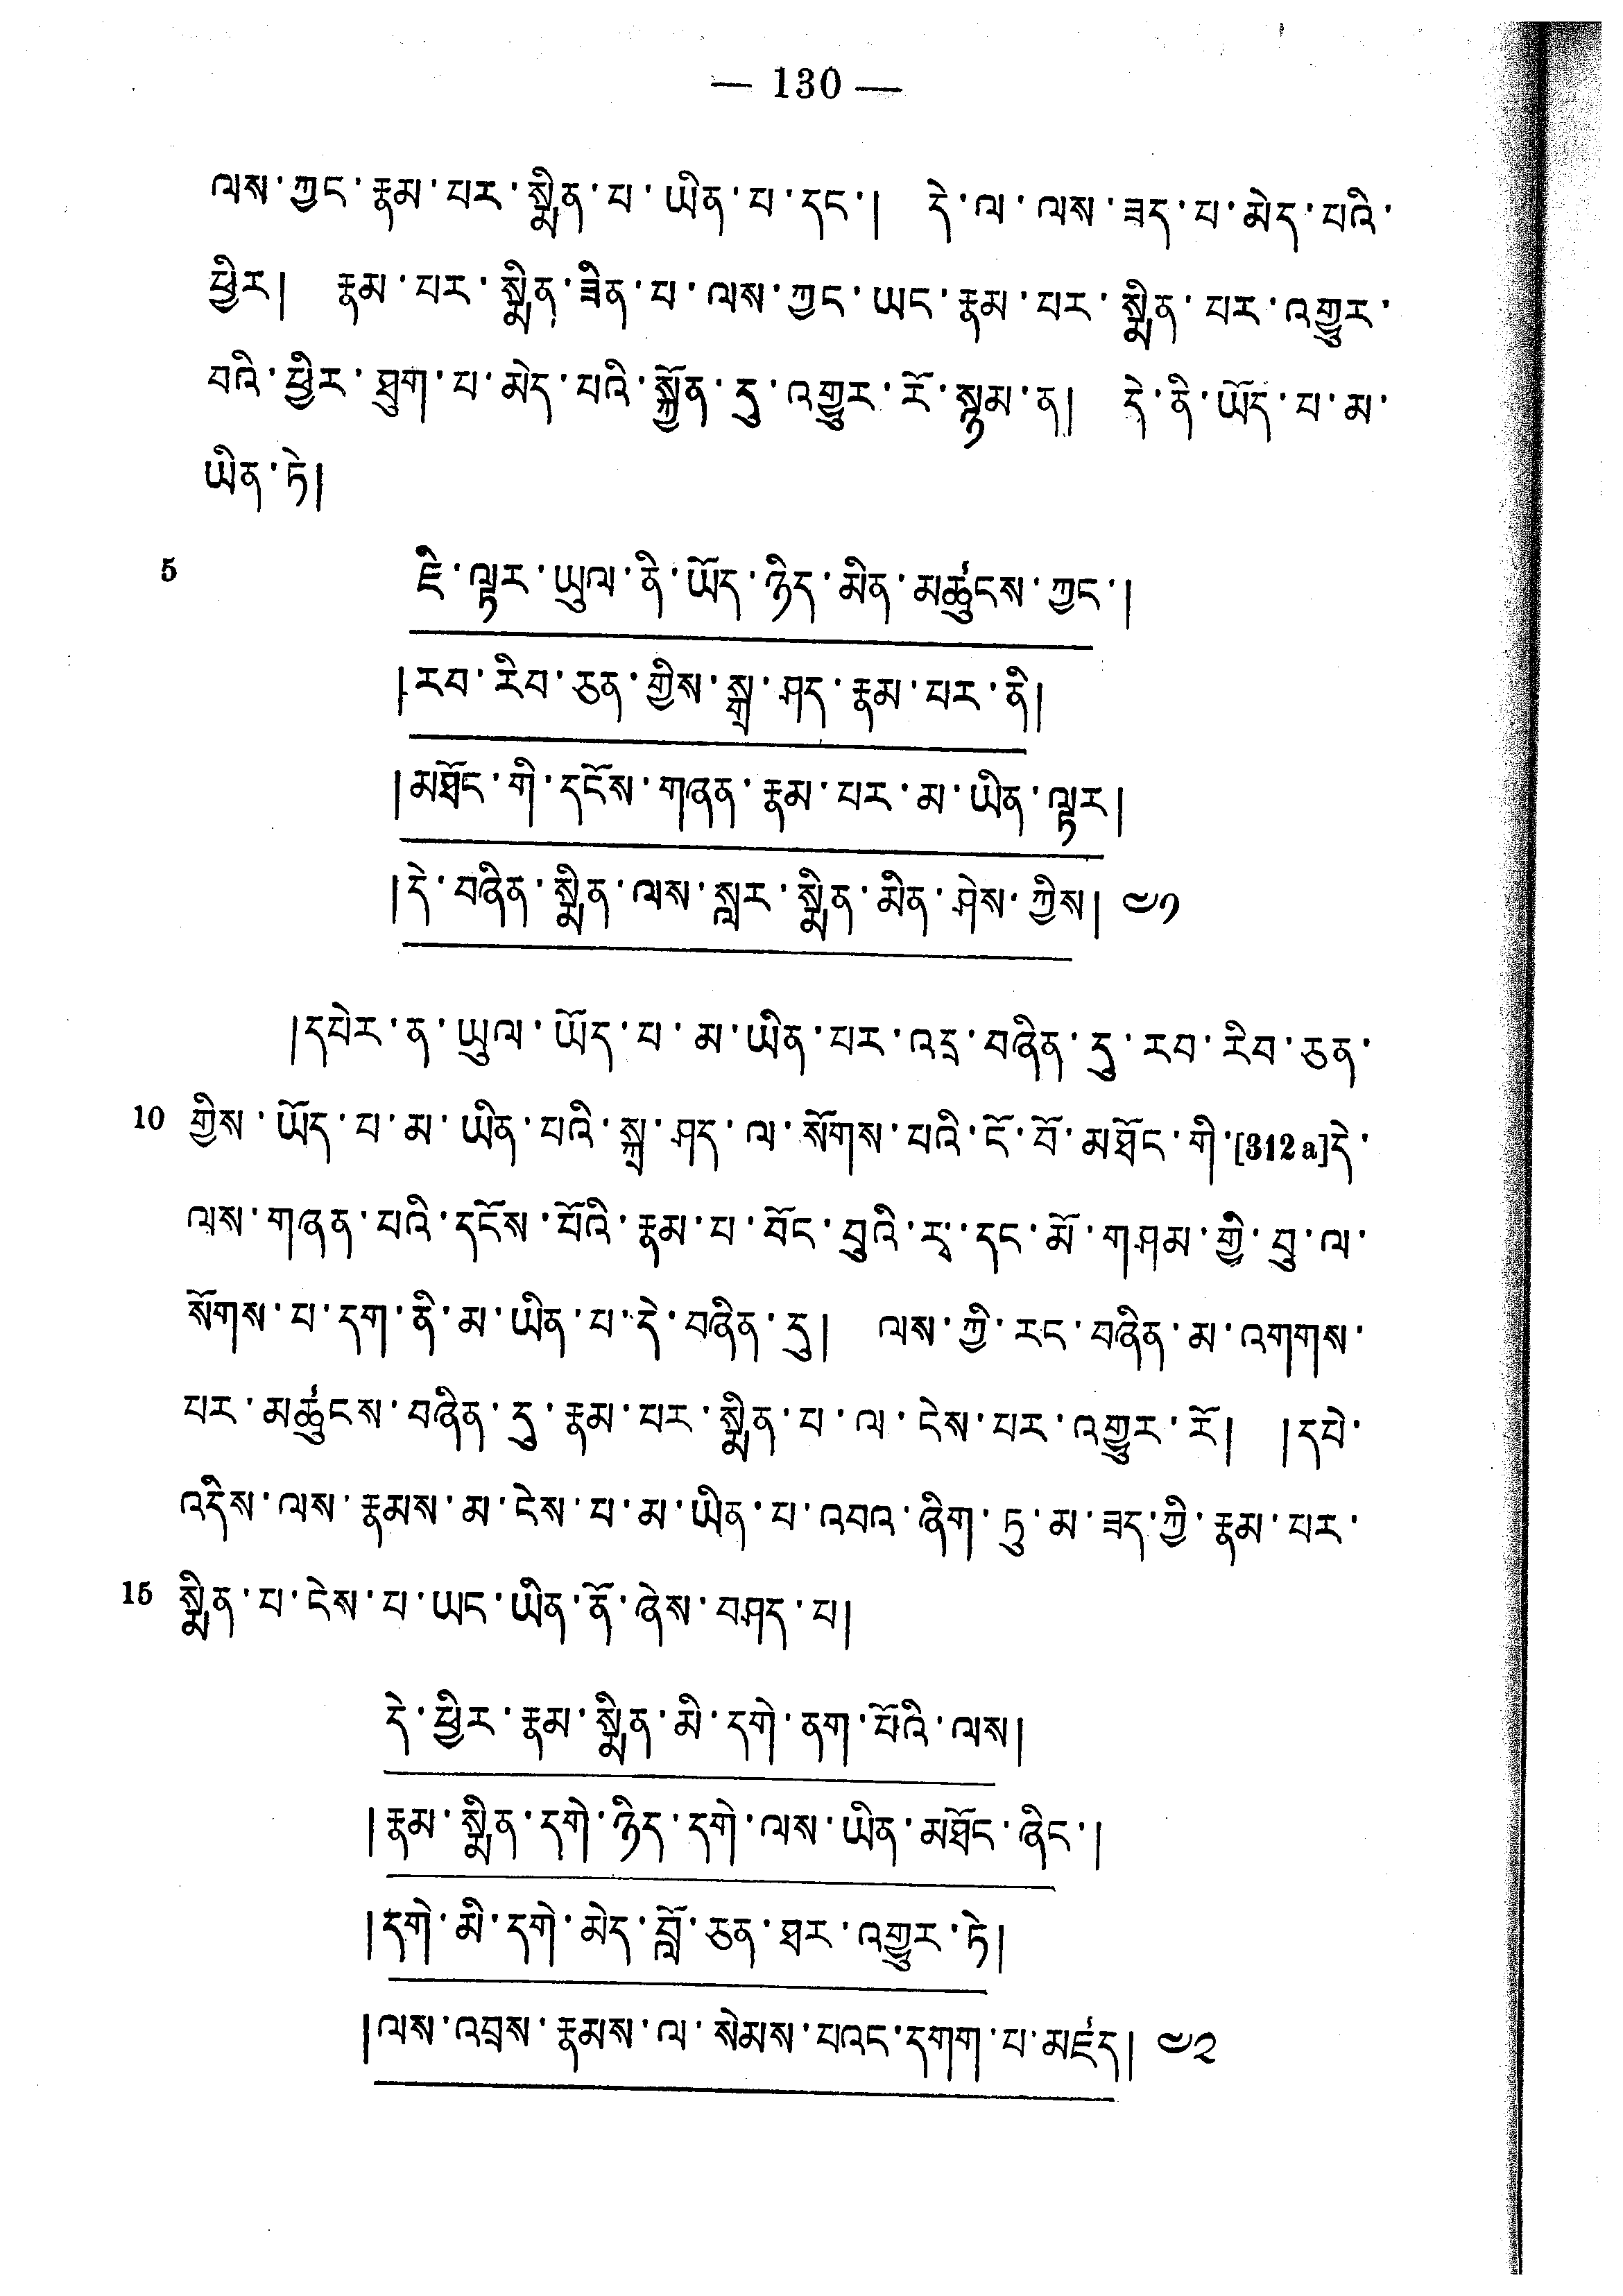 — 130 —
ལས་ཀྱང་རྣམ་པར་སྨིན་པ་ཡིན་པ་དང་། དེ་ལ་ལས་ཟད་པ་མེད་པའི་
ཕྱིར། རྣམ་པར་སྨིན་ཟིན་པ་ལས་ཀྱང་ཡང་རྣམ་པར་སྨིན་པར་འགྱུར་
བའི་ཕྱིར་ཐུག་པ་མེད་པའི་སྐྱོན་དུ་འགྱུར་རོ་སྙམ་ན། དེ་ནི་ཡོད་པ་མ་
ཡིན་ཏེ།
5 ཇི་ལྟར་ཡུལ་ནི་ཡོད་ཉིད་མིན་མཚུངས་ཀྱང་།
།རབ་རིབ་ཅན་གྱིས་སྐྲ་ཤད་རྣམ་པར་ནི།
།མཐོང་གི་དངོས་གཞན་རྣམ་པར་མ་ཡིན་ལྟར།
།དེ་བཞིན་སྨིན་ལས་སླར་སྨིན་མིན་ཤེས་ཀྱིས། ༤༡
།དཔེར་ན་ཡུལ་ཡོད་པ་མ་ཡིན་པར་འདྲ་བཞིན་དུ་རབ་རིབ་ཅན་
10 གྱིས་ཡོད་པ་མ་ཡིན་པའི་སྐྲ་ཤད་ལ་སོགས་པའི་ངོ་བོ་མཐོང་གི་[312a]དེ་
ལས་གཞན་པའི་དངོས་པོའི་རྣམ་པ་བོང་བུའི་རྭ་དང་མོ་གཤམ་གྱི་བུ་ལ་
སོགས་པ་དག་ནི་མ་ཡིན་པ་དེ་བཞིན་དུ། ལས་ཀྱི་རང་བཞིན་མ་འགགས་
པར་མཚུངས་བཞིན་དུ་རྣམ་པར་སྨིན་པ་ལ་ངེས་པར་འགྱུར་རོ། །དཔེ་
འདིས་ལས་རྣམས་མ་ངེས་པ་མ་ཡིན་པ་འབའ་ཞིག་ཏུ་མ་ཟད་ཀྱི་རྣམ་པར་
15 སྨིན་པ་ངེས་པ་ཡང་ཡིན་ནོ་ཞེས་བཤད་པ།
དེ་ཕྱིར་རྣམ་སྨིན་མི་དགེ་ནག་པོའི་ལས།
།རྣམ་སྨིན་དགེ་ཉིད་དགེ་ལས་ཡིན་མཐོང་ཞིང་།
།དགེ་མི་དགེ་མེད་བློ་ཅན་ཐར་འགྱུར་ཏེ།
།ལས་འབྲས་རྣམས་ལ་སེམས་པའང་དགག་པ་མཛད། ༤༢